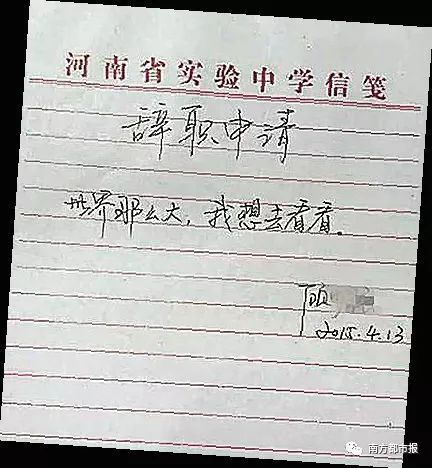 河南省实验中学信笺
辞职申请
世界那么大，我想去看看。
顾
2015.4.13
南方都市报